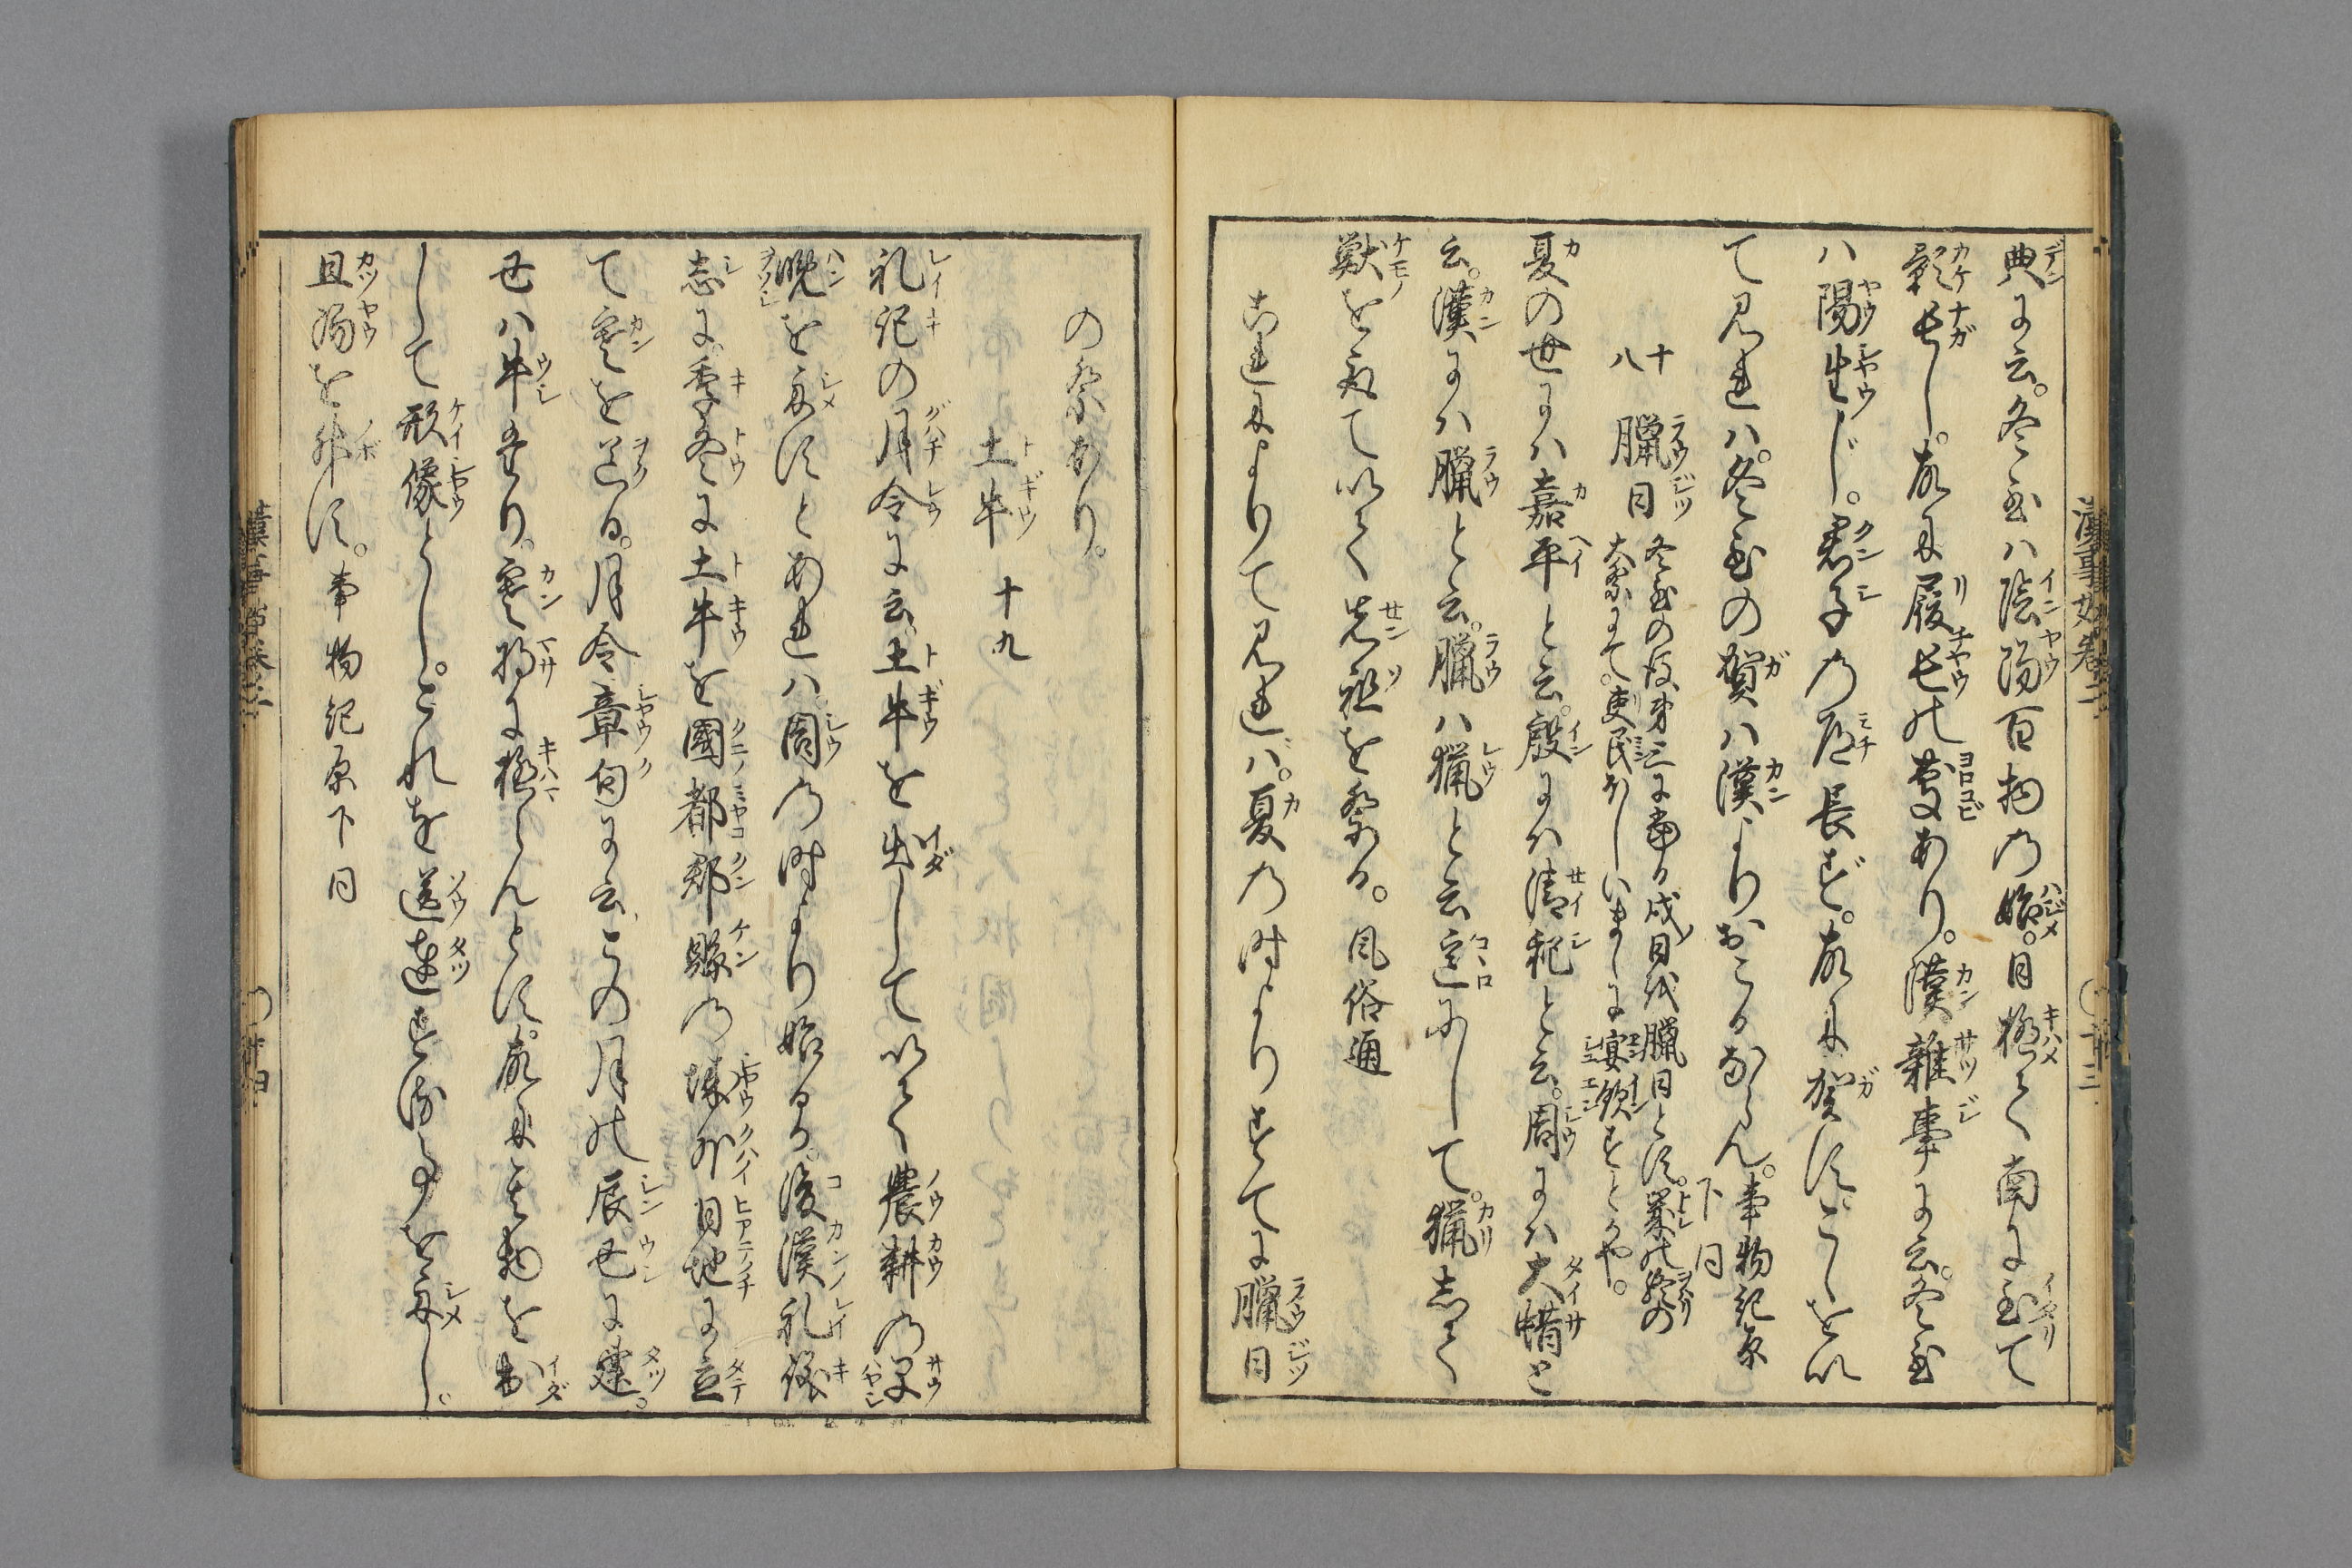 典に云。冬至ハ陰陽百物の始。日極て南に至て
影長し。故に履長の慶あり。漢雑事に云。冬至
ハ陽生じ。君子の道長ず。故に賀す。これを以
て見れハ。冬至の賀ハ漢よりおこるならん。事物紀原下同
十八 臘日 冬至の後第三に當る戌日を臘日とす。歳の終の
大祭にて。吏民おしいまゝに宴飲すとかや。
夏の世にハ嘉平と云。殷にハ清祀と云。周にハ大蜡と
云。漢にハ臘と云。臘ハ猟と云意にして。猟して
獣を取て以て先祖を祭る。風俗通
これによりて見れバ。夏の時よりすでに臘日
漢事始巻二
の祭あり。
土牛 十九
礼記の月令に云。土牛を出して以て農耕の早
晩を示すとあれハ。周の時より始る。後漢礼儀
志に。季冬に土牛を國都郡縣の城外丑地に立
て寒を送る。月令章句に云。この月の辰丑に建。
丑ハ牛なり。寒将に極らんとす。故に其物を出
して形像とし。これを送達する事を示し。
且陽を升す。事物紀原下同